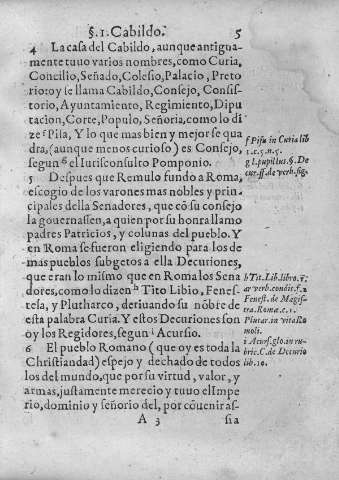 §.1.Cabildo. 5
4 La casa del Cabildo, aunque antigua-
mente tuuo varios nombres, como Curia,
Concilio, Señado, Colesio, Palacio, Preto
rio: oy se llama Cabildo, Consejo, Consis-
torio, Ayuntamiento, Regimiento, Dipu
tacion, Corte, Populo, Señoria, como lo di
ze f Pisa, Y lo que mas bien y mejor se qua
dra, (aunque menos curioso) es Consejo,
segun g el Iurisconsulto Pomponio.
5 Despues que Remulo fundo a Roma,
escogio de los varones mas nobles y prin-
cipales della Senadores, que cõ su consejo
la gouernassen, a quien por su honra llamo
padres Patricios, y colunas del pueblo. Y
en Roma se fueron eligiendo para los de
mas pueblos subgetos a ella Decuriones,
que eran lo mismo que en Roma los Sena
dores, como lo dizen h Tito Libio, Fenes-
tela, y Plutharco, deriuando su nõbre de
esta palabra Curia. Y estos Decuriones son
oy los Regidores, segun i Acursio.
6 El pueblo Romano (que oy es toda la
Christiandad) espejo y dechado de todos
los del mundo, que por su virtud, valor, y
armas, justamente merecio y tuuo el Impe
rio, dominio y señorio del, por cõuenir as-
A 3 sia
f Pisa in Curia lib
1.c.5.n.5.
g l.pupillus.§.De
cur.ff.de verb.sig.
h Tit. Lib.libro.
ar verb.condit.f.2
Fenest. de Magis-
tra.Roma.c.1.
Plutar.in vita Ro
moli.
i Acurs.glo.in ru-
bric.C.de Decurio
lib.10.